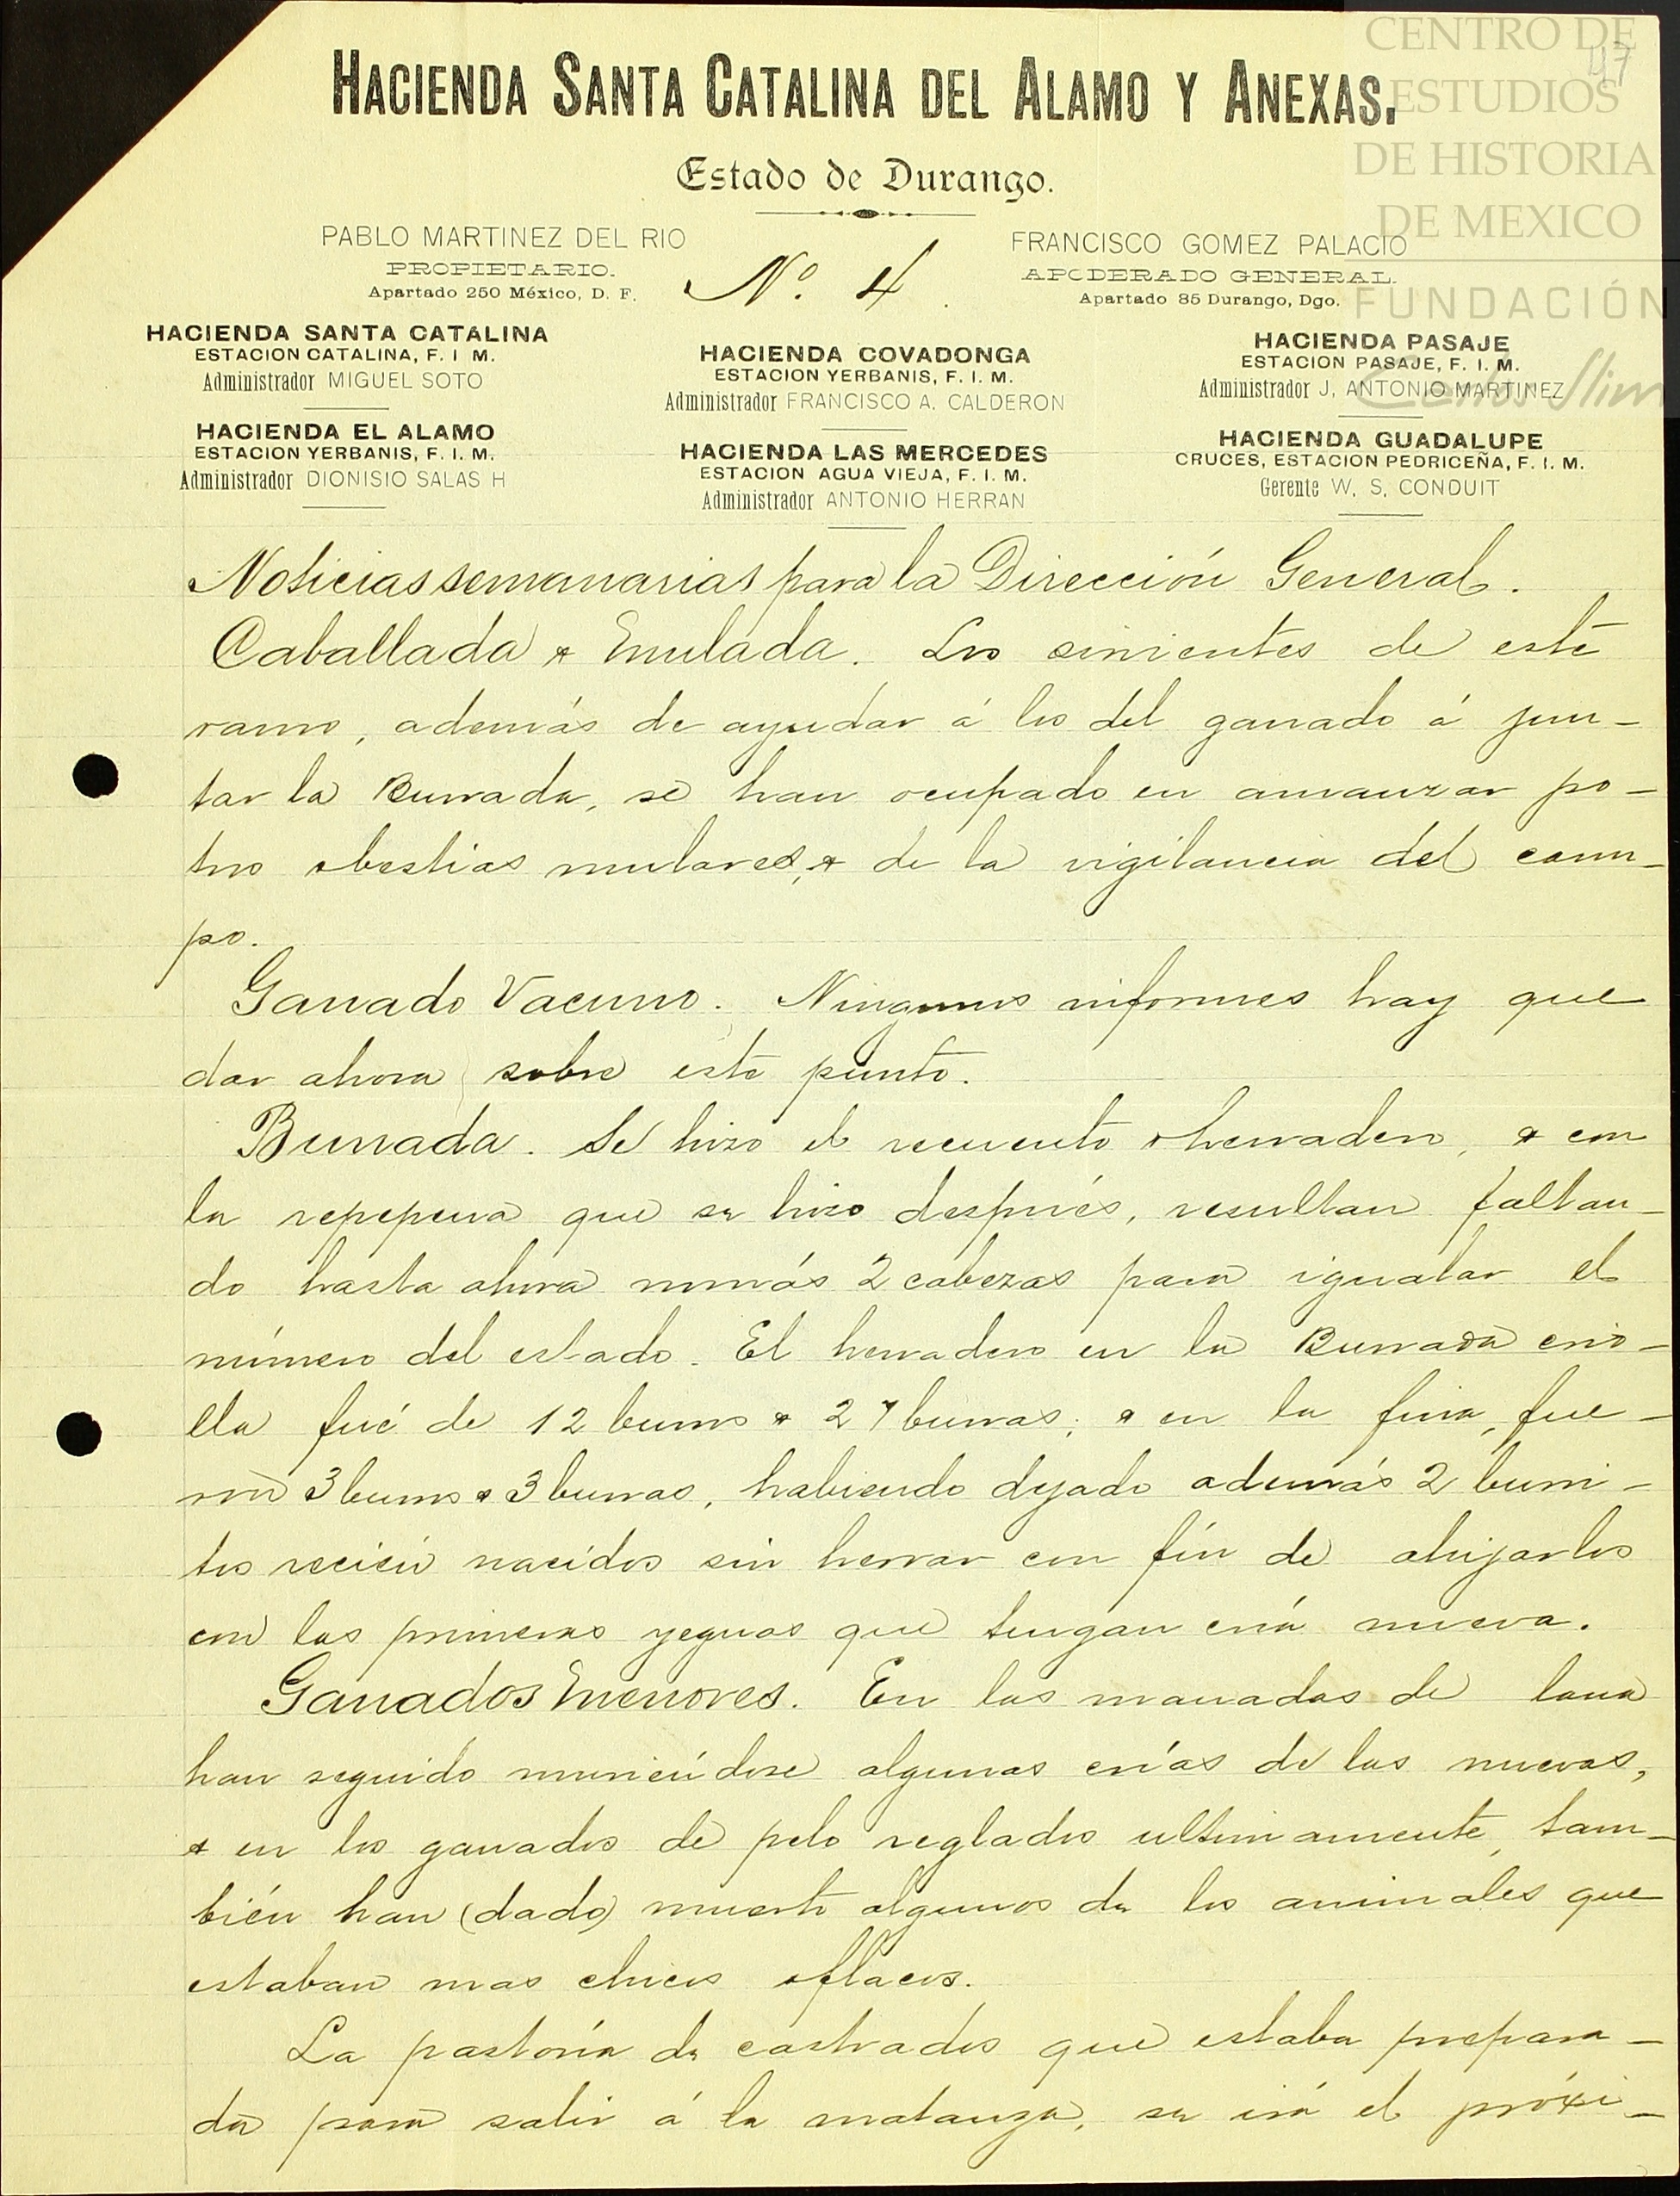 CENTRO DE
ESTUDIOS
DE HISTORIA
DE MEXICO
FUNDACIÓN
Carlos Slim
47
HACIENDA SANTA CATALINA DEL ALAMO Y ANEXAS.
Estado de Durango.
PABLO MARTINEZ DEL RIO
PROPIETARIO.
Apartado 250 México, D. F.
Nº. 4.
FRANCISCO GOMEZ PALACIO
APODERADO GENERAL.
Apartado 85 Durango, Dgo.
HACIENDA SANTA CATALINA
ESTACION CATALINA, F. I M.
Administrador MIGUEL SOTO
HACIENDA EL ALAMO
ESTACION YERBANIS, F. I. M.
Administrador DIONISIO SALAS H
HACIENDA COVADONGA
ESTACION YERBANIS, F. I. M.
Administrador FRANCISCO A. CALDERON
HACIENDA LAS MERCEDES
ESTACION AGUA VIEJA, F. I. M.
Administrador ANTONIO HERRAN
HACIENDA PASAJE
ESTACION PASAJE, F. I. M.
Administrador J, ANTONIO MARTINEZ
HACIENDA GUADALUPE
CRUCES, ESTACION PEDRICEÑA, F. I. M.
Gerente W. S. CONDUIT
Noticias semanarias para la Dirección General.
Caballada y Mulada. Los sirvientes de este
ramo, además de ayudar á los del ganado á jun-
tar la Burrada, se han ocupado en amanzar po-
tros y bestias mulares, y de la vigilancia del cam-
po.
Ganado Vacuno. Ningunos informes hay que
dar ahora sobre este punto.
Burrada. Se hizo el recuento y herradero, y con
la repepena que se hizo después, resultan faltan-
do hasta ahora nomás 2 cabezas para igualar el
número del estado. El herradero en la Burrada crio-
lla fué de 12 burros y 27 burras; y en la fina, fue-
ron 3 burros y 3 burras, habiendo dejado además 2 burri-
tos recién nacidos sin herrar con fín de ahijarlos
con las primeras yeguas que tengan cría nueva.
Ganados Menores. En las manadas de lana
han seguido muriéndose algunas crías de las nuevas,
y en los ganados de pelo reglados ultimamente, tam-
bién han (dado) muerto algunos de los animales que
estaban mas chicos y flacos.
La pastoría de castrados que estaba prepara-
da para salir á la matanza, se irá el próxi-